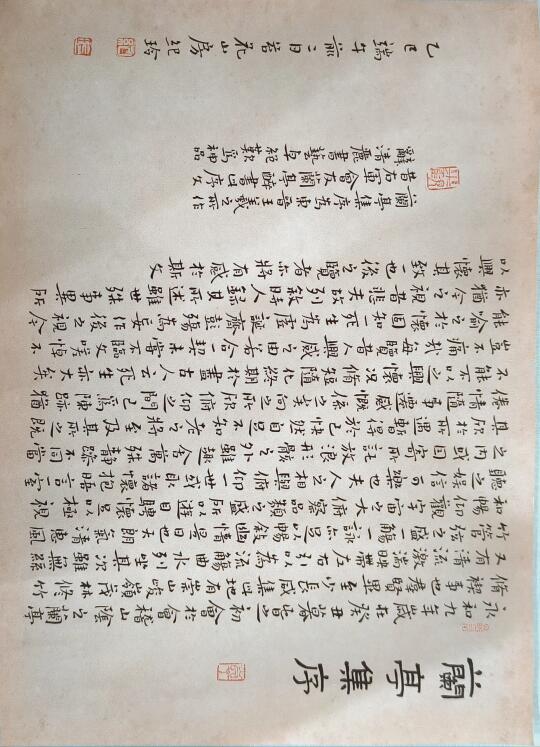 蘭亭集序
永和九年歲在癸丑暮春之初會於會稽山陰之蘭亭
脩禊事也羣賢畢至少長咸集此地有崇山峻領茂林修竹
又有清流激湍映帶左右引以為流觴曲水列坐其次雖無絲
竹管弦之盛一觴一詠亦足以暢敘幽情是日也天朗氣清惠風
和暢仰觀宇宙之大俯察品類之盛所以遊目騁懷足以極視
聽之娛信可樂也夫人之相與俯仰一世或取諸懷抱悟言一室
之內或因寄所託放浪形骸之外雖趣舍萬殊靜躁不同當
其欣於所遇暫得於己快然自足不知老之將至及其所之既
惓情隨事遷感慨係之矣向之所欣俯仰之間已為陳跡猶
不能不以之興懷況脩短隨化終期於盡古人云死生亦大矣
豈不痛哉每攬昔人興感之由若合一契未嘗不臨文嗟悼不
能喻之於懷固知一死生為虛誕齊彭殤為妄作後之視今
亦猶今之視昔悲夫故列敘時人錄其所述雖世殊事異所
以興懷其致一也後之覽者亦將有感於斯文
蘭亭集序為東晉王羲之所作
昔右軍會友蘭亭醉書此序文
辭清麗書藝卓絕歎為神品
乙巳端午前二日苔花山房紀玲